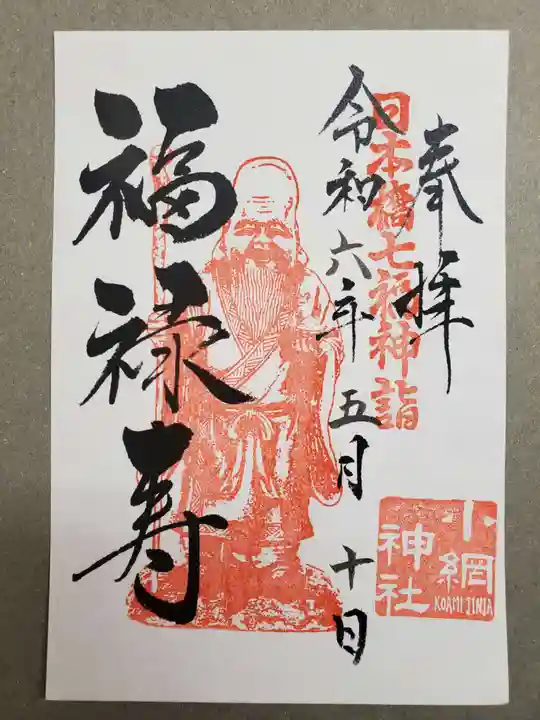 奉拝
日本橋七福神詣
令和六年五月十日
福禄寿
小網
神社
KOAMI JINJA